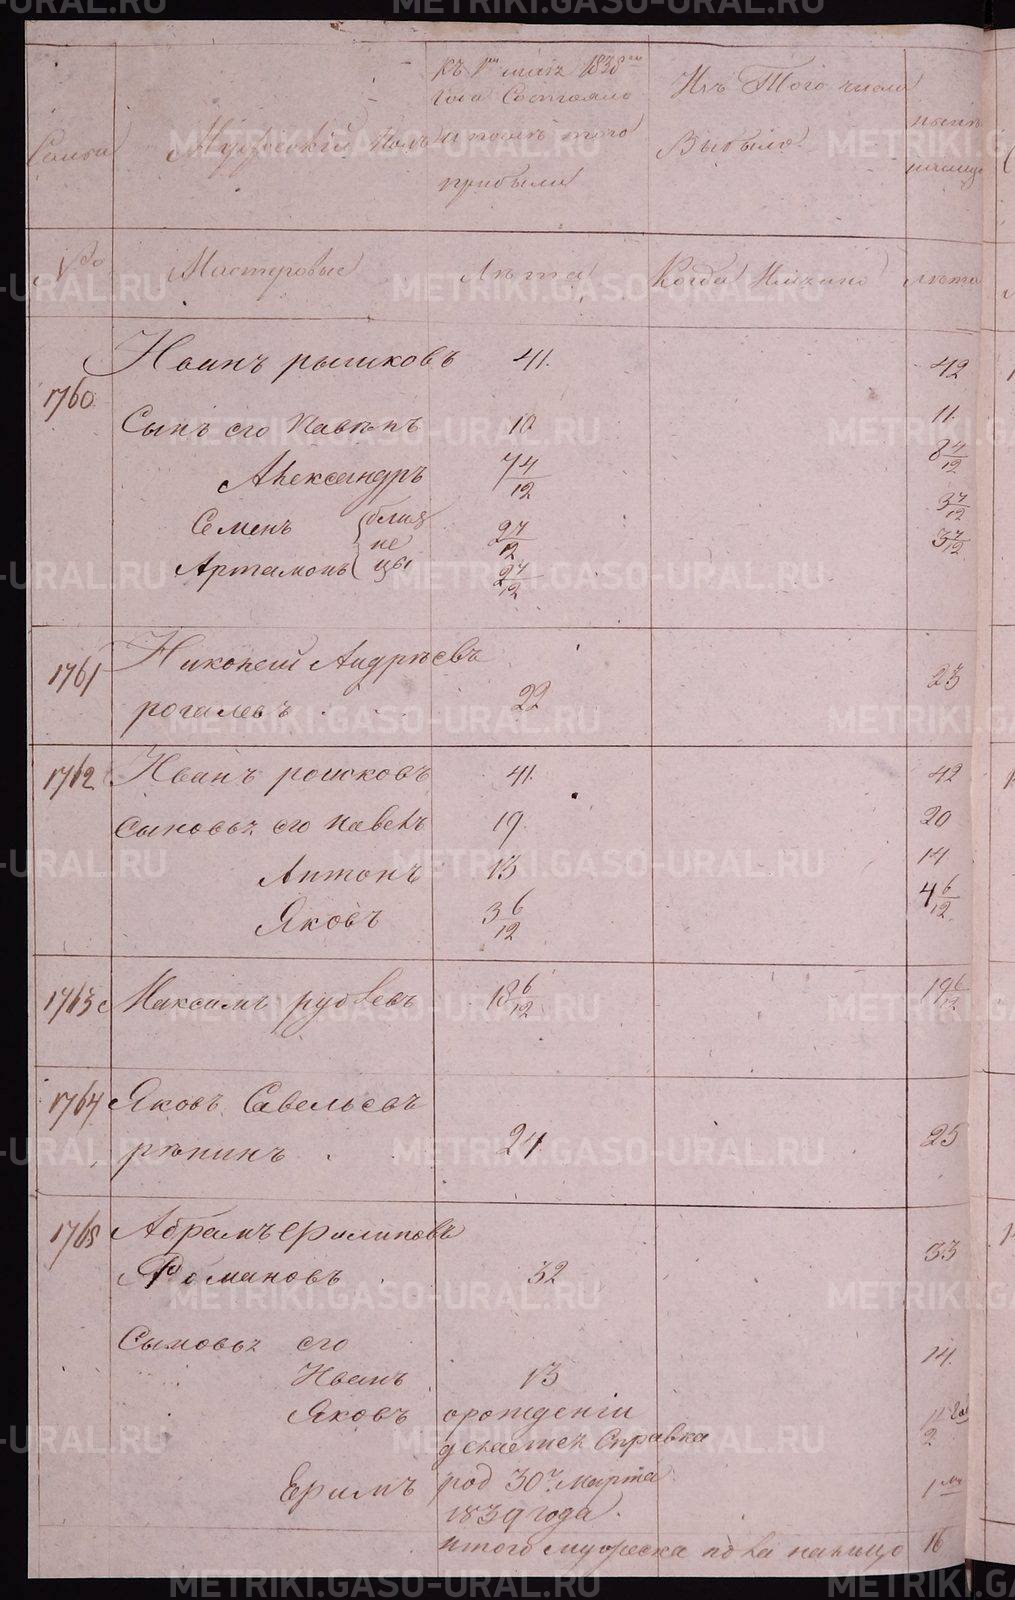 Къ 1му маія 1838го
Года Состояло
и послѣ того
прибыли
Изъ Того числа
Выбыло
Семьи
Мужескій Полъ
налицо
№
Мастеровые
Лѣта
Когда Имянно
лѣта
1760
Иванъ рышковъ 41. 42
Сынъ его Павелъ 10 11.
Александръ 7 4/12 8 4/12
Семенъ близ 2 7/12 3 7/12
не
Артамонъ цы 2 7/12 3 7/12
1761 Андрѣевъ
рогалевъ 22 23
1762 Иванъ роисковъ 41. 42
Сыновья его Павелъ 19. 20
Антонъ 13 14
Яковъ 3 6/12 4 6/12
1763 Максимъ рублевъ 18 6/12 19 6/12
1764 Яковъ Савельевъ
рѣпинъ 24 25
1765 Абрамъ Филиповъ
Романовъ 32 33
Сыновья его
Иванъ 13 14.
Яковъ орождении
делается Справка
Ефимъ род 30го Марта
1839 года
итого мужеска пола налицо 16
METRIKI.GASO-URAL.RU